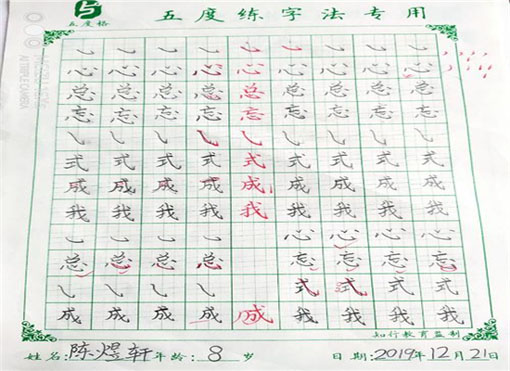 五度格
五度练字法专用
㇃ ㇃ ㇃ ㇃ ㇃ ㇃ ㇃ ㇃ ㇃ ㇃
心 心 心 心 心 心 心 心 心 心
总 总 总 总 总 总 总 总 总 总
忘 忘 忘 忘 忘 忘 忘 忘 忘 忘
㇂ ㇂ ㇂ ㇂ ㇂ ㇂ ㇂ ㇂ ㇂ ㇂
式 式 式 式 式 式 式 式 式 式
成 成 成 成 成 成 成 成 成 成
我 我 我 我 我 我 我 我 我 我
㇃ ㇃ ㇃ ㇃ 心 心 心 心 心
总 总 总 总 忘 忘 忘 忘 忘
㇂ ㇂ ㇂ ㇂ 式 式 式 式 式
成 成 成 成 成 我 我 我 我 我
知行教育监制
姓名:陈煜轩年龄:8岁 日期:2019年12月21日